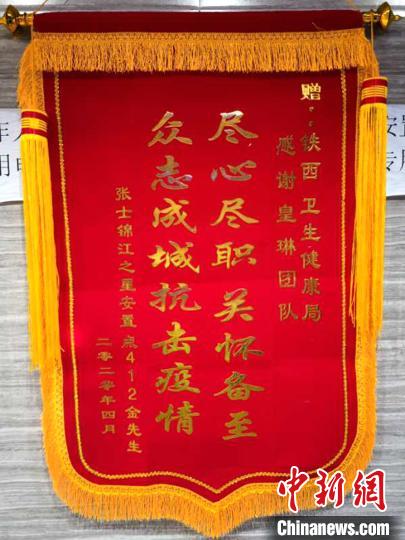 赠：铁西卫生健康局
感谢皇琳团队
尽心尽职关怀备至
众志成城抗击疫情
张士锦江之星安置点412金先生
二零二零年四月
中新网
Chinanews.com